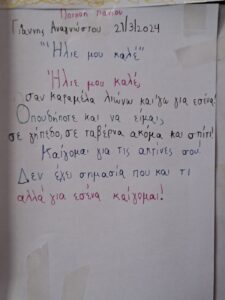 Ποίηση πάνιου
Γιάννης Αναγνώστου 27/3/2024
"Ήλιε μου καλέ"
Ήλιε μου καλέ,
σαν καραμέλα λιώνω και'γω για εσένα!
Οπουδήποτε και να είμαι,
σε γήπεδο, σε ταβέρνα ακόμα και σπίτι!
Καίγομαι για τις ακτίνες σου!
Δεν έχει σημασία που και τι
αλλά για εσένα καίγομαι!